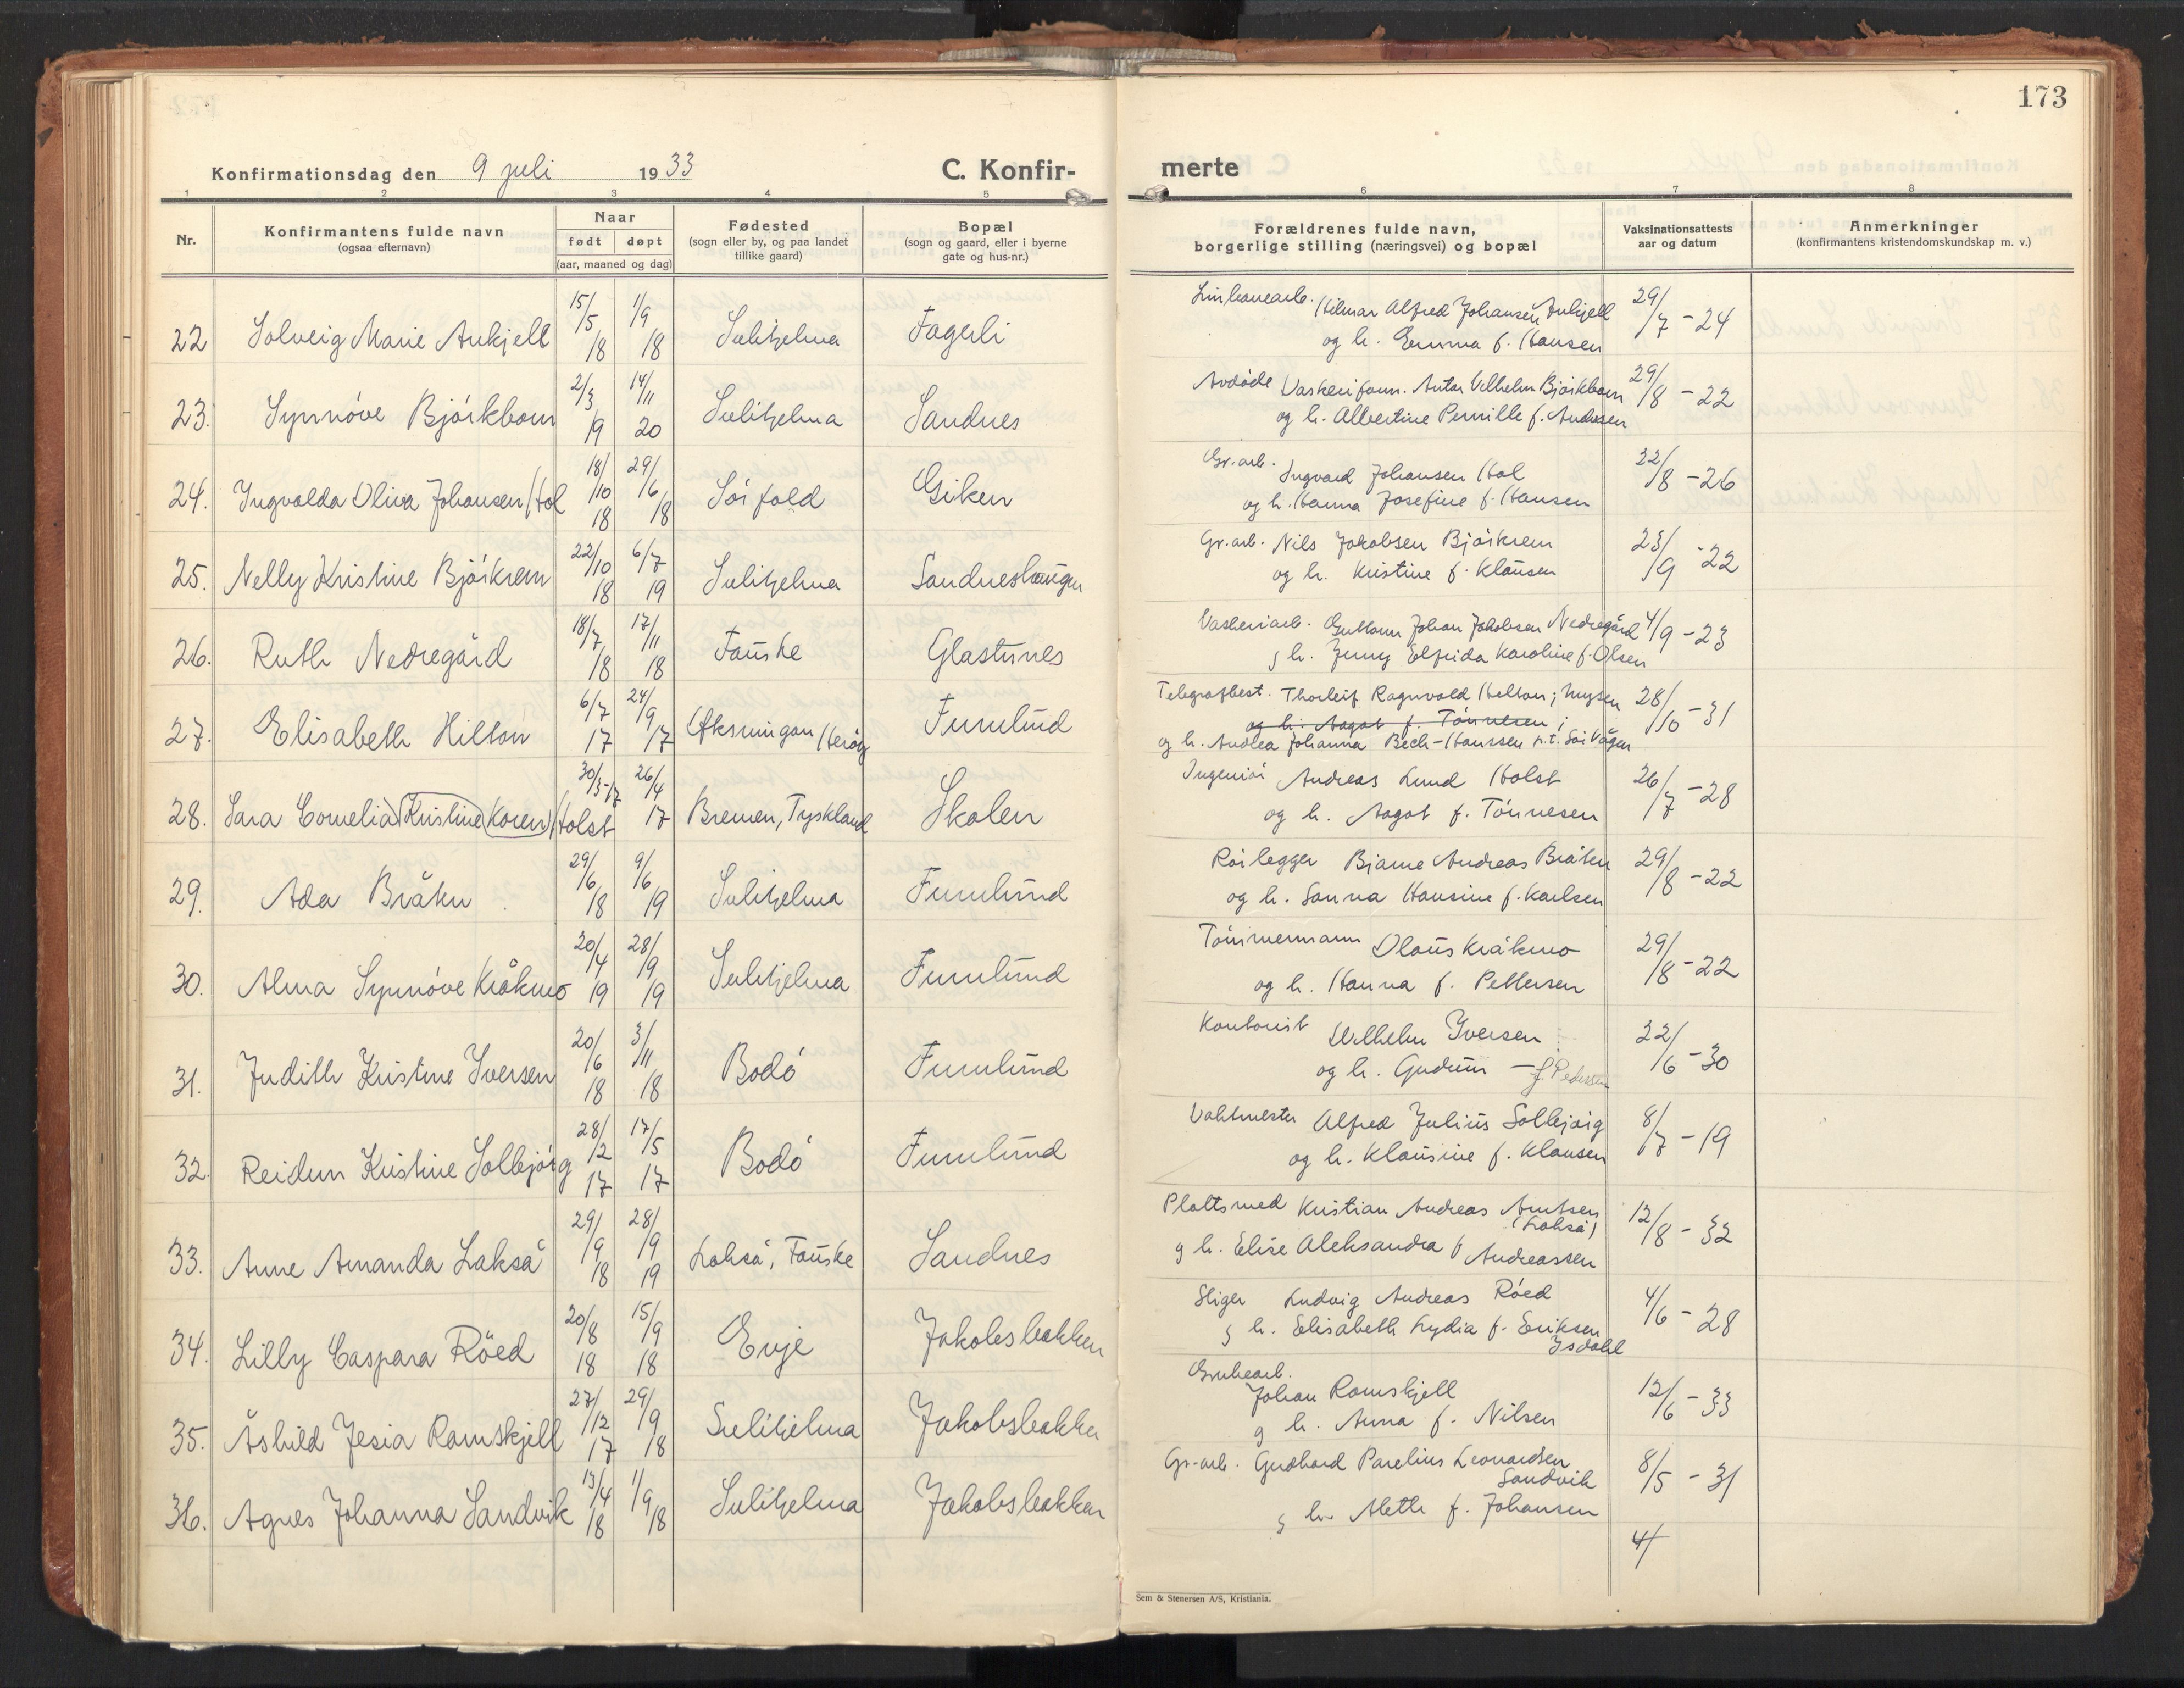 173
Konfirmationsdag den 9 juli 1933
C. Konfir-
merte
1 2 3 4 5 6 7 8
Nr.
Konfirmantens fulde navn
(ogsaa efternavn)
Naar
født døpt
(aar, maaned og dag)
Fødested
(sogn eller by, og paa landet
tillike gaard)
Bopæl
(sogn og gaard, eller i byerne
gate og hus-nr.)
Forældrenes fulde navn,
borgerlige stilling (næringsvei) og bopæl
Vaksinationsattests
aar og datum
Anmerkninger
(konfirmantens kristendomskundskap m. v.)
22 Solveig Marie Ankjell 15/5 18 1/9 18 Sulitjelma Fagerli
Linbanearb. Hilmar Alfred Johansen Ankjell 29/7 - 24
og h. Emma f. Hansen
23. Synnóve Bjórkbom 2/3 19 14/11 20 Sulitjelma Sandnes
Avdóde Vaskeriform. Anton Vilhelm Bjórkbom 29/8 - 22
og h. Albertine Pernille f. Andersen
24. Ingvalda Oliva Johansen Hol 18/10 18 29/6 18 Sórfold Giken
Gr.arb. Ingvard Johansen Hol 22/8 - 26
og h. Hanna Josefine f. Hansen
25. Nelly Kristine Bjórkrem 22/10 18 6/7 19 Sulitjelma Sandneshaugen
Gr.arb. Nils Jakobsen Bjórkrem 23/9 - 22
og h. Kristine f. Klausen
26. Ruth Nedregård 18/7 18 17/11 18 Fauske Glastunes
Vaskeriarb. Guttorm Johan Jakobsen Nedregård 4/9 - 23
g h. Jenny Elfrida Karoline f. Olsen
27. Elisabeth Hilton 6/7 17 24/9 17 Heróy Furulund
Telegrafbest. Thorleif Ragnvald Helton; Mysen 28/10 - 31
og h. Aagot f. Tónnesen;
og h. Andrea Johanna Bech-Hanssen p.t. Sórvågen
28. Sara Cornelia (Kristine) (Koren) Holst 30/3-17 26/4 17 Bremen, Tyskland Skolen
Ingenió Andreas Lund Holst 26/7 - 28
og h. Aagot f. Tónnesen
29. Ada Bråten 29/6 18 9/6 19 Sulitjelma Furulund
Rórlegger Bjarne Andreas Bråten 29/8 - 22
og h. Sanna Hansine f. Karlsen
30. Alma Synnóve Kråkmo 20/4 19 28/9 19 Sulitjelma Furulund
Tómmermann Olaus Kråkmo 29/8 - 22
og h. Hanna f. Pettersen
31. Judith Kristine Iversen 20/6 18 3/11 18 Bodó Furulund
Kontorist Wilhelm Iversen 22/6 - 30
og h. Gudrun — f Pedersen
32. Reidun Kristine Solbjórg 28/12 17 17/5 17 Bodó Furulund
Vaktmester Alfred Julius Solbjórg 8/7 - 19
og h. Klausine f. Klausen
33. Anne Amanda Lakså 29/9 18 28/9 19 Lakså, Fauske Sandnes
Plattsmed Kristian Andreas Arntsen 12/8 - 32
(Lakså)
g h. Elise Aleksandra f Andreassen
34. Lilly Caspara Röed 20/8 18 15/9 18 Evje Jakobsbakken
Stiger Ludvig Andreas Róed 4/6 - 28
g h. Elisabeth Lydia f. Eriksen
Isdahl
35. Åshild Jesia Ramskjell 27/12 17 29/9 18 Sulitjelma Jakobsbakken
Grubearb.
Johan Ramskjell 12/6 - 33
g h. Anna f. Nilsen
36. Agnes Johanna Sandvik 13/4 18 1/9 18 Sulitjelma Jakobsbakken
Gr-arb. Gudhard Parelius Leonardsen 8/5 - 31
Sandvik
g h. Meth f. Johansen
4/
Sem & Stenersen A/S, Kristiania.